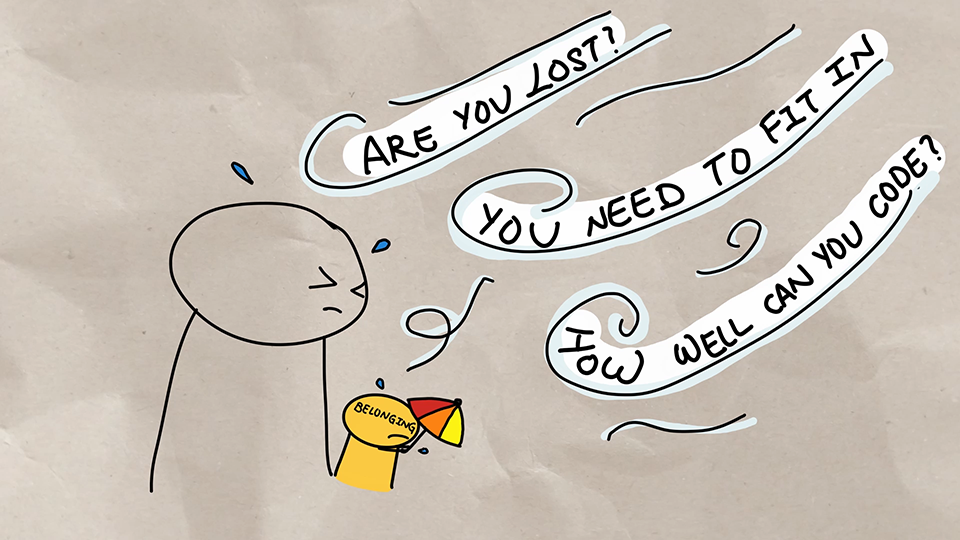 ARE YOU LOST?
YOU NEED TO FIT IN
HOW WELL CAN YOU CODE?
BELONGING